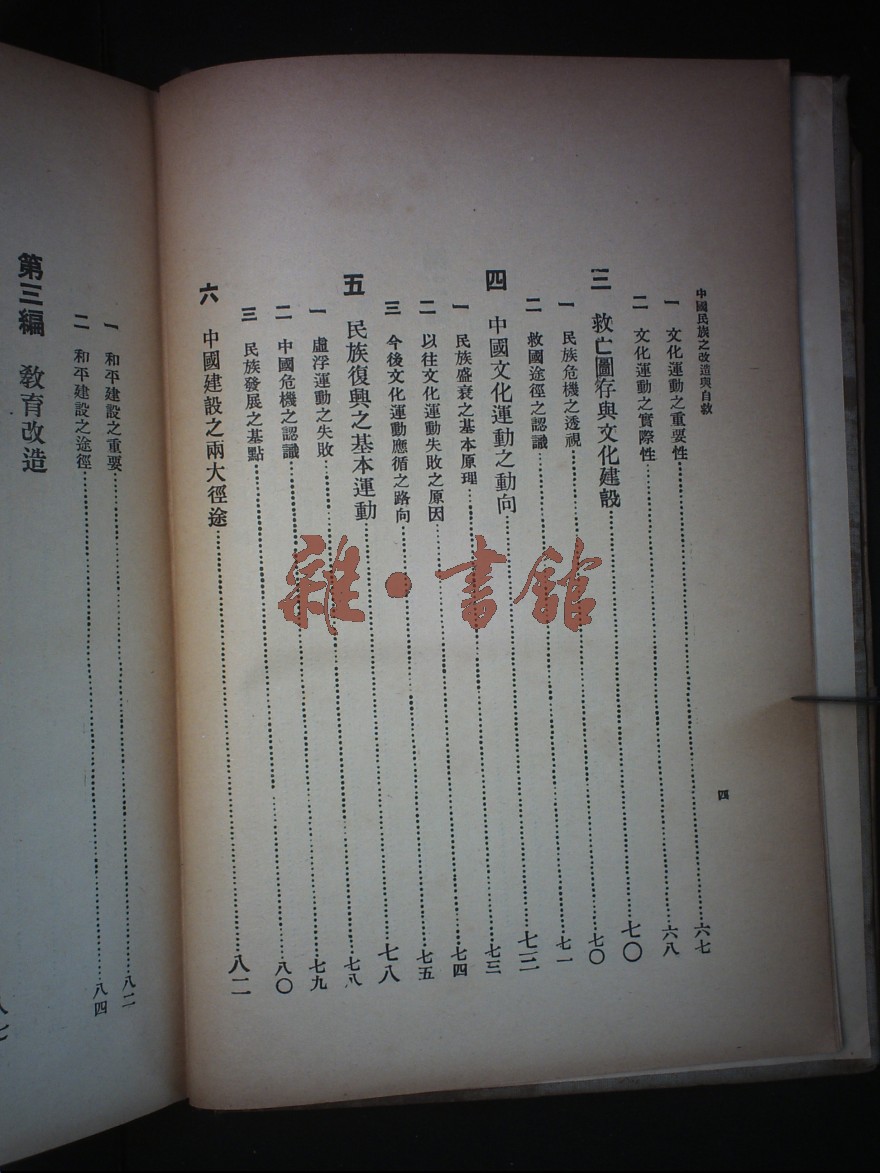 中國民族之改造與自救
四
一 文化運動之重要性 六七
二 文化運動之實際性 六八
三 救亡圖存與文化建設 七〇
一 民族危機之透視 七〇
二 救國途徑之認識 七一
四 中國文化運動之動向 七三
一 民族盛衰之基本原理 七三
二 以往文化運動失敗之原因 七四
三 今後文化運動應循之路向 七五
五 民族復興之基本運動 七八
一 虛浮運動之失敗 七八
二 中國危機之認識 七九
三 民族發展之基點 八〇
六 中國建設之兩大徑途 八二
一 和平建設之重要 八二
二 和平建設之途徑 八四
第三編 教育改造 八七
雜·書館